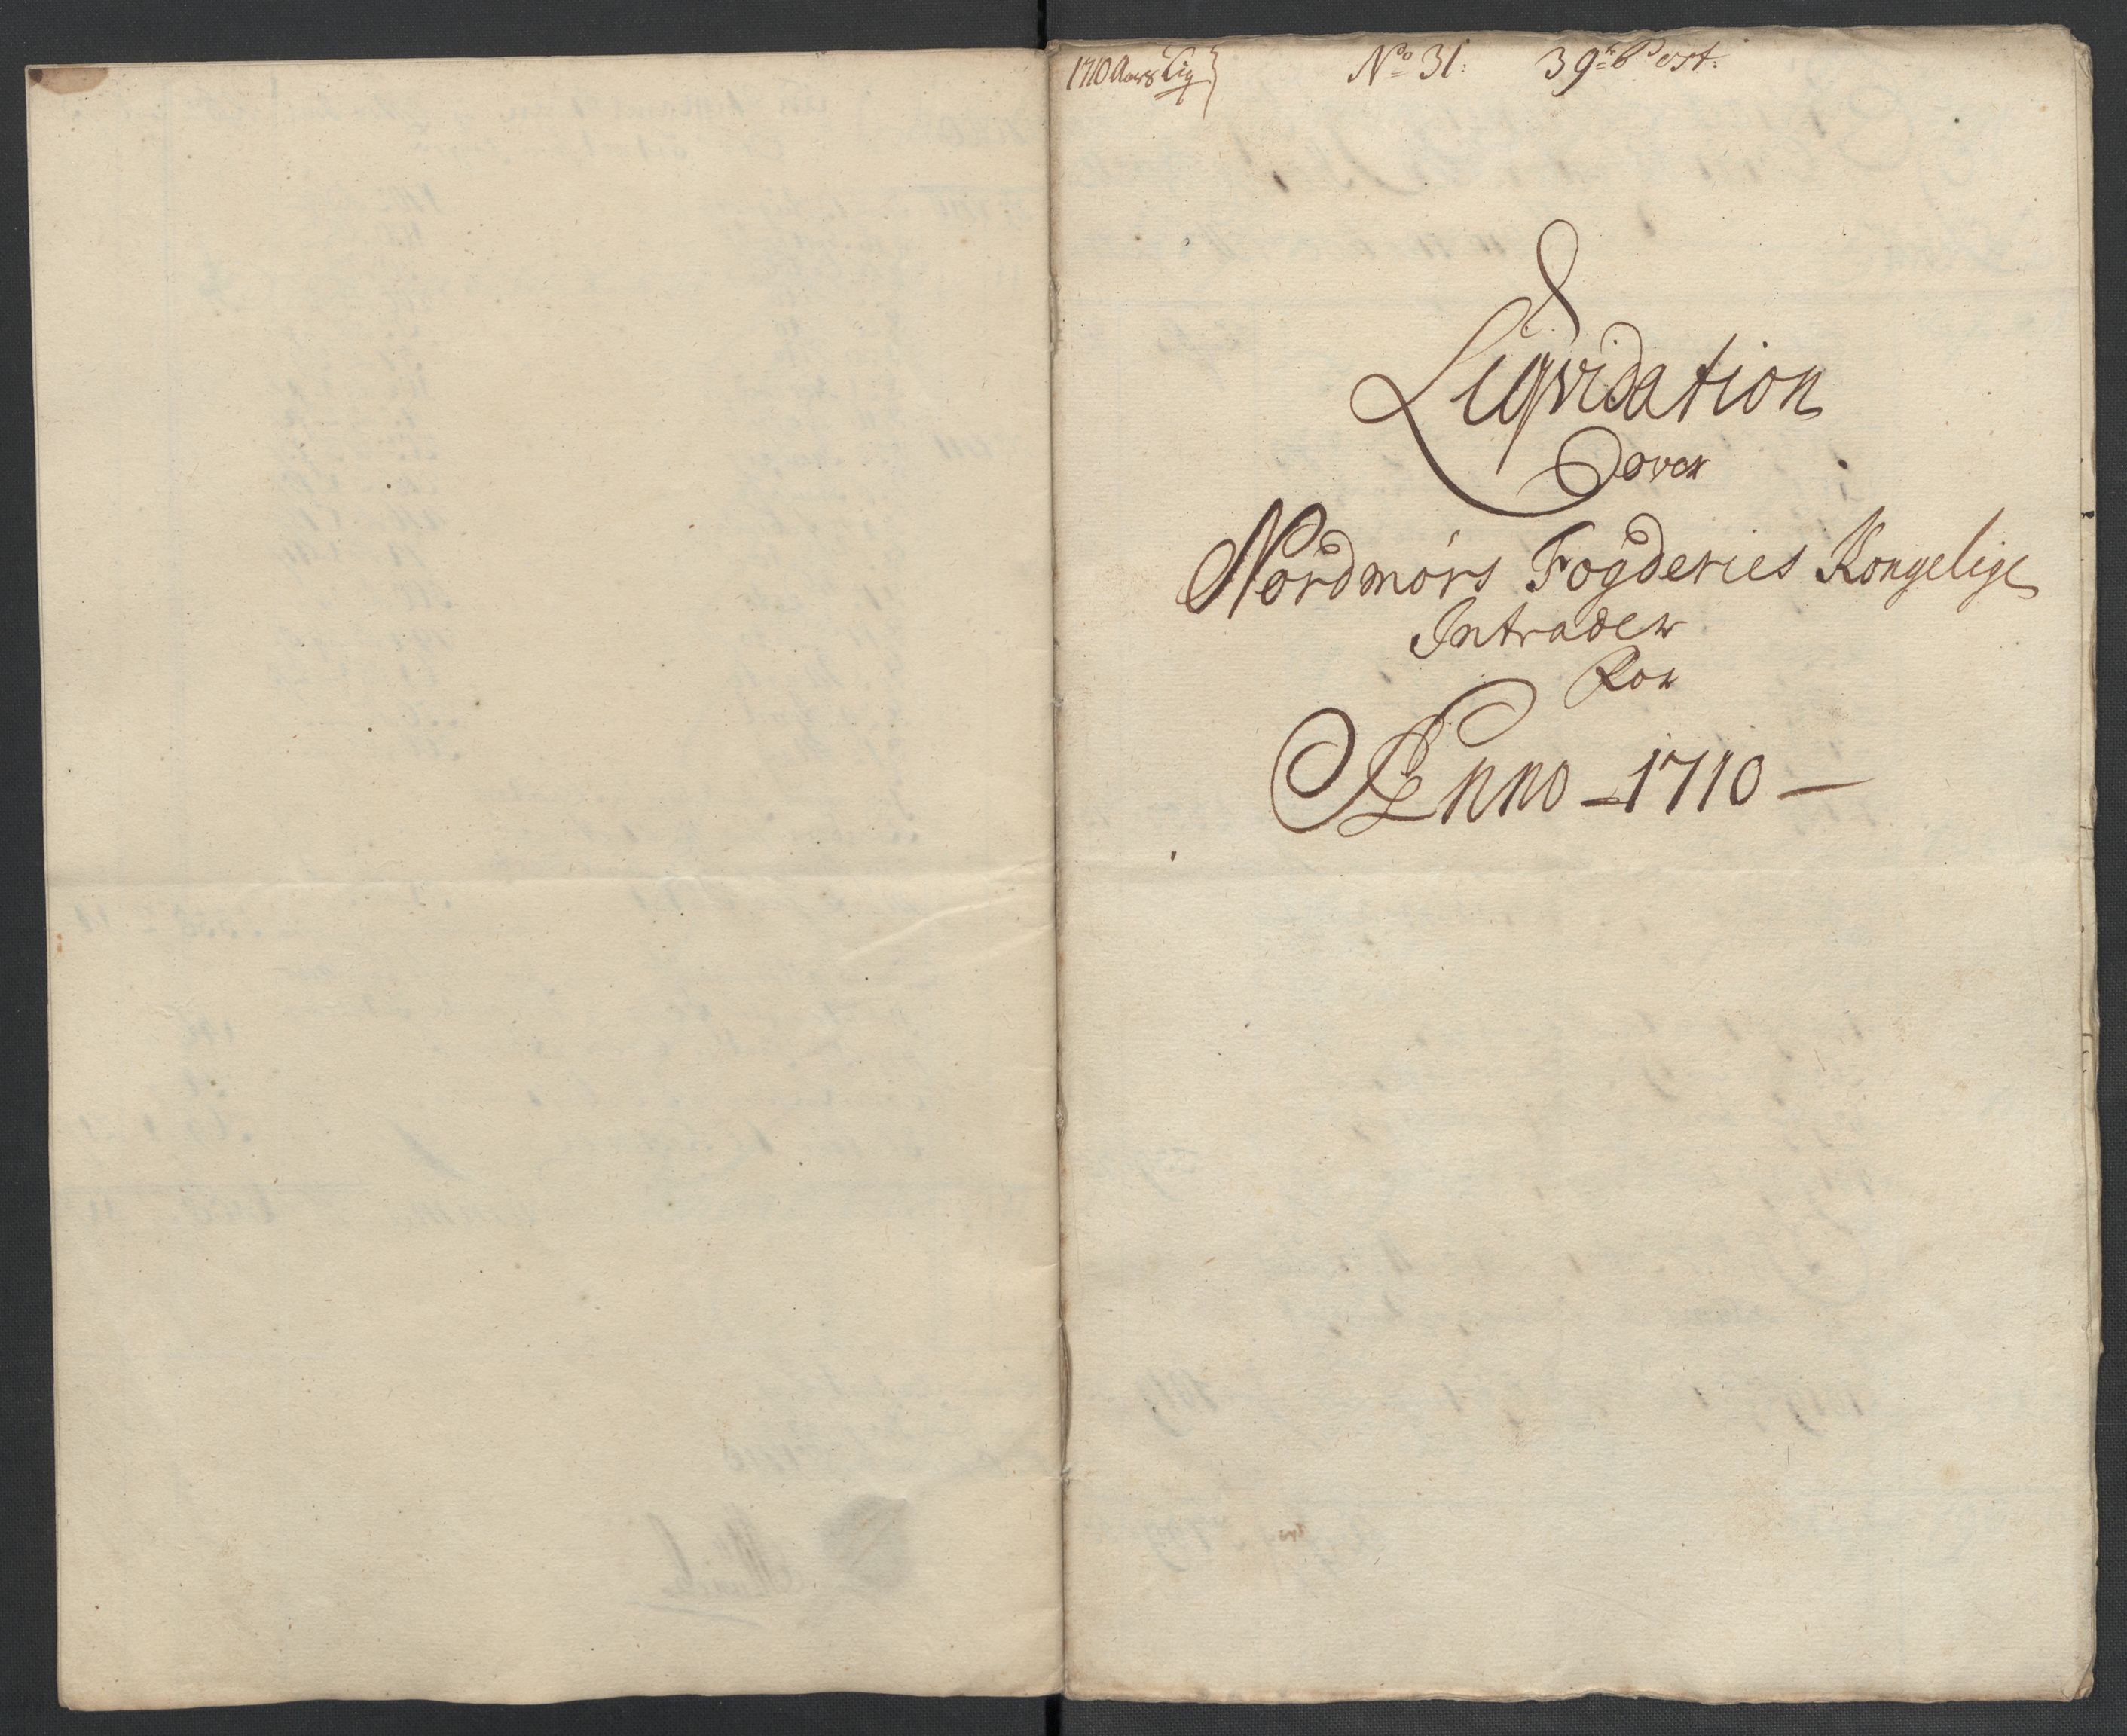 1710 Aars Liq
No 31. 39te Post.
Liqvidation
over
Nordmørs Fogderies Kongelige
Intrader
For
Anno - 1710 -